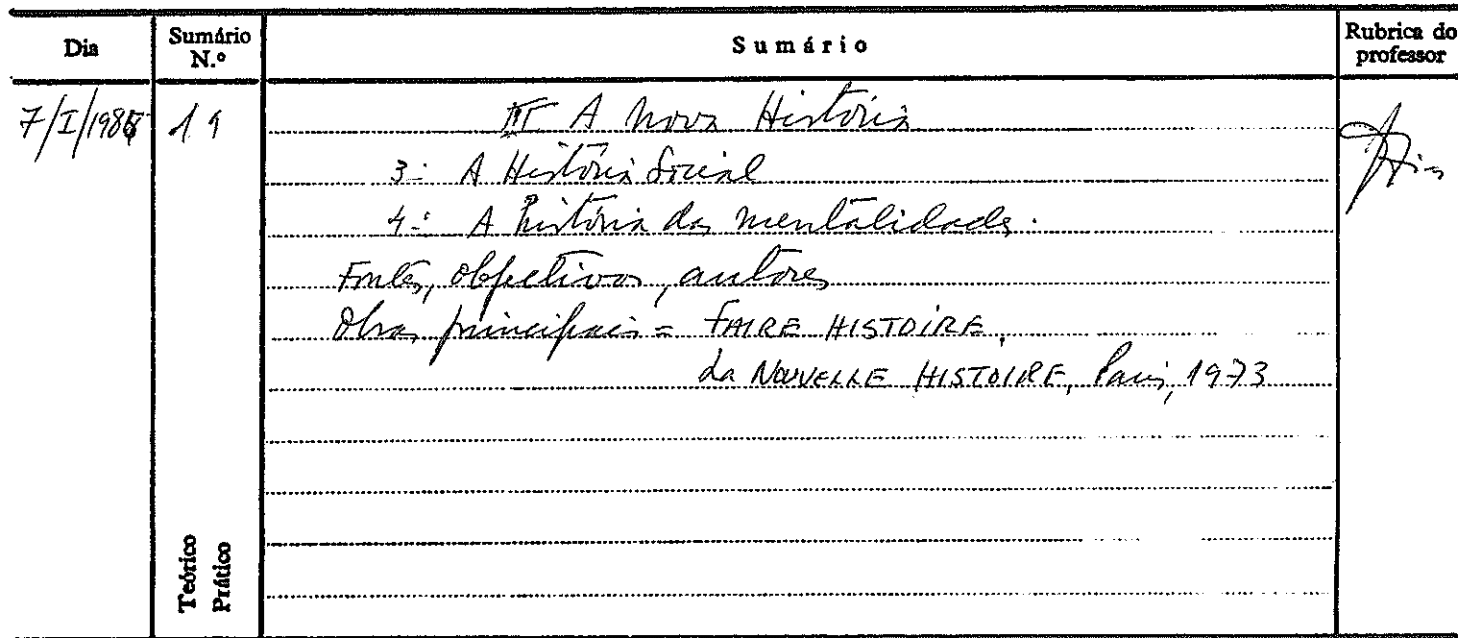 Dia
Sumário N.º
Sumário
Rubrica do professor
7/I/198
19
III A Nova História
3- A História Social
4- A história das mentalidades.
Fontes, objectivos, autores
Obras principais = FAIRE HISTOIRE,
La NOUVELLE HISTOIRE, Paris, 1973
Teórico
Prático